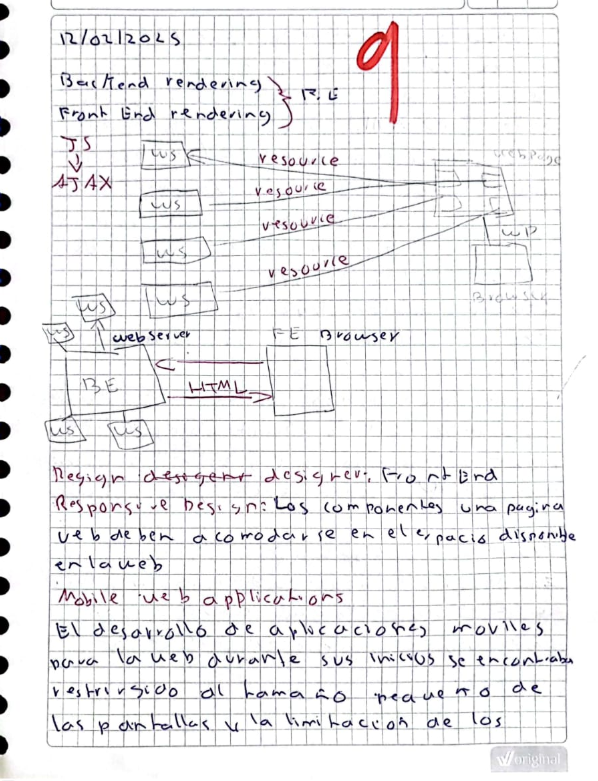 12/02/2025
9
Backend rendering
Front End rendering } R.E
JS
AJAX
WS
resource
webpage
WS
resource
WS
resource
WP
WS
resource
Browser
WS
WS
webserver
FE Browser
BE
HTML
WS
WS
designer: Front End
Responsive Design: Los componentes una pagina
web deben acomodarse en el espacio disponible
en la web
Mobile web applications
El desarrollo de aplicaciones moviles
para la web durante sus inicios se encontraba
al tamaño pequeño de
las pantallas y la limitacion de los
original